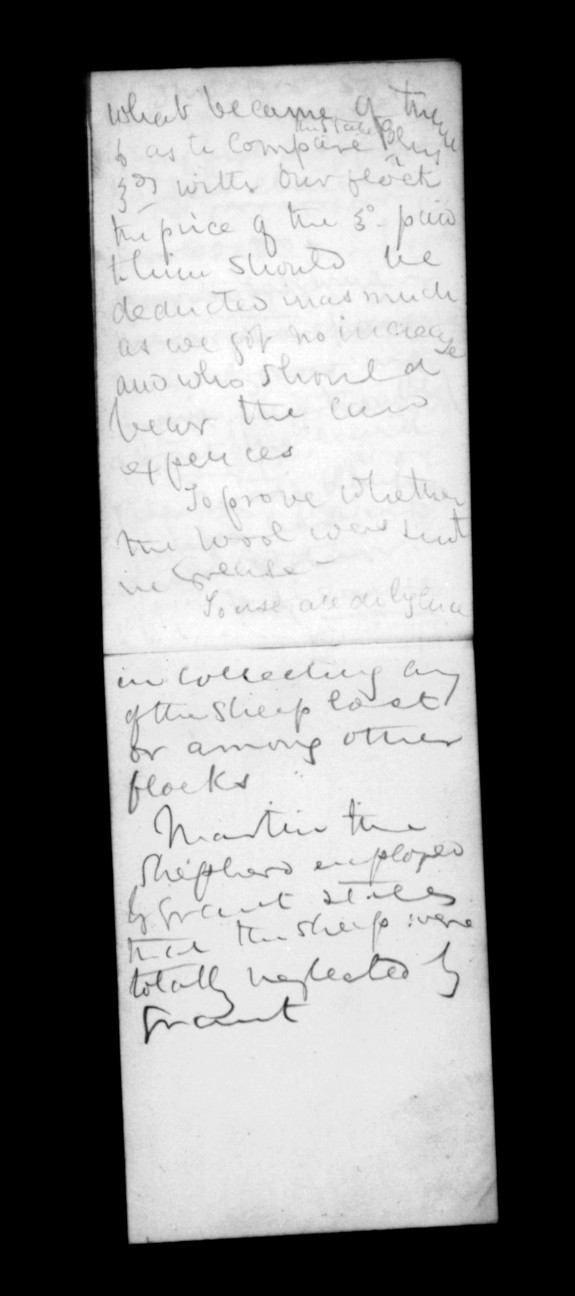 what became of them
& as to compare the state of
with our flock
the price of the 30 paid
them should be
deducted inasmuch
as we got no increase
and who should
bear the law
expences
To prove whether
the wool was sent
in Grease -
To use all diligence
in collecting any
of the sheep lost
or among other
flocks
Martin the
Shepherd employed
by Grant states
that the sheep were
totally neglected by
Grant